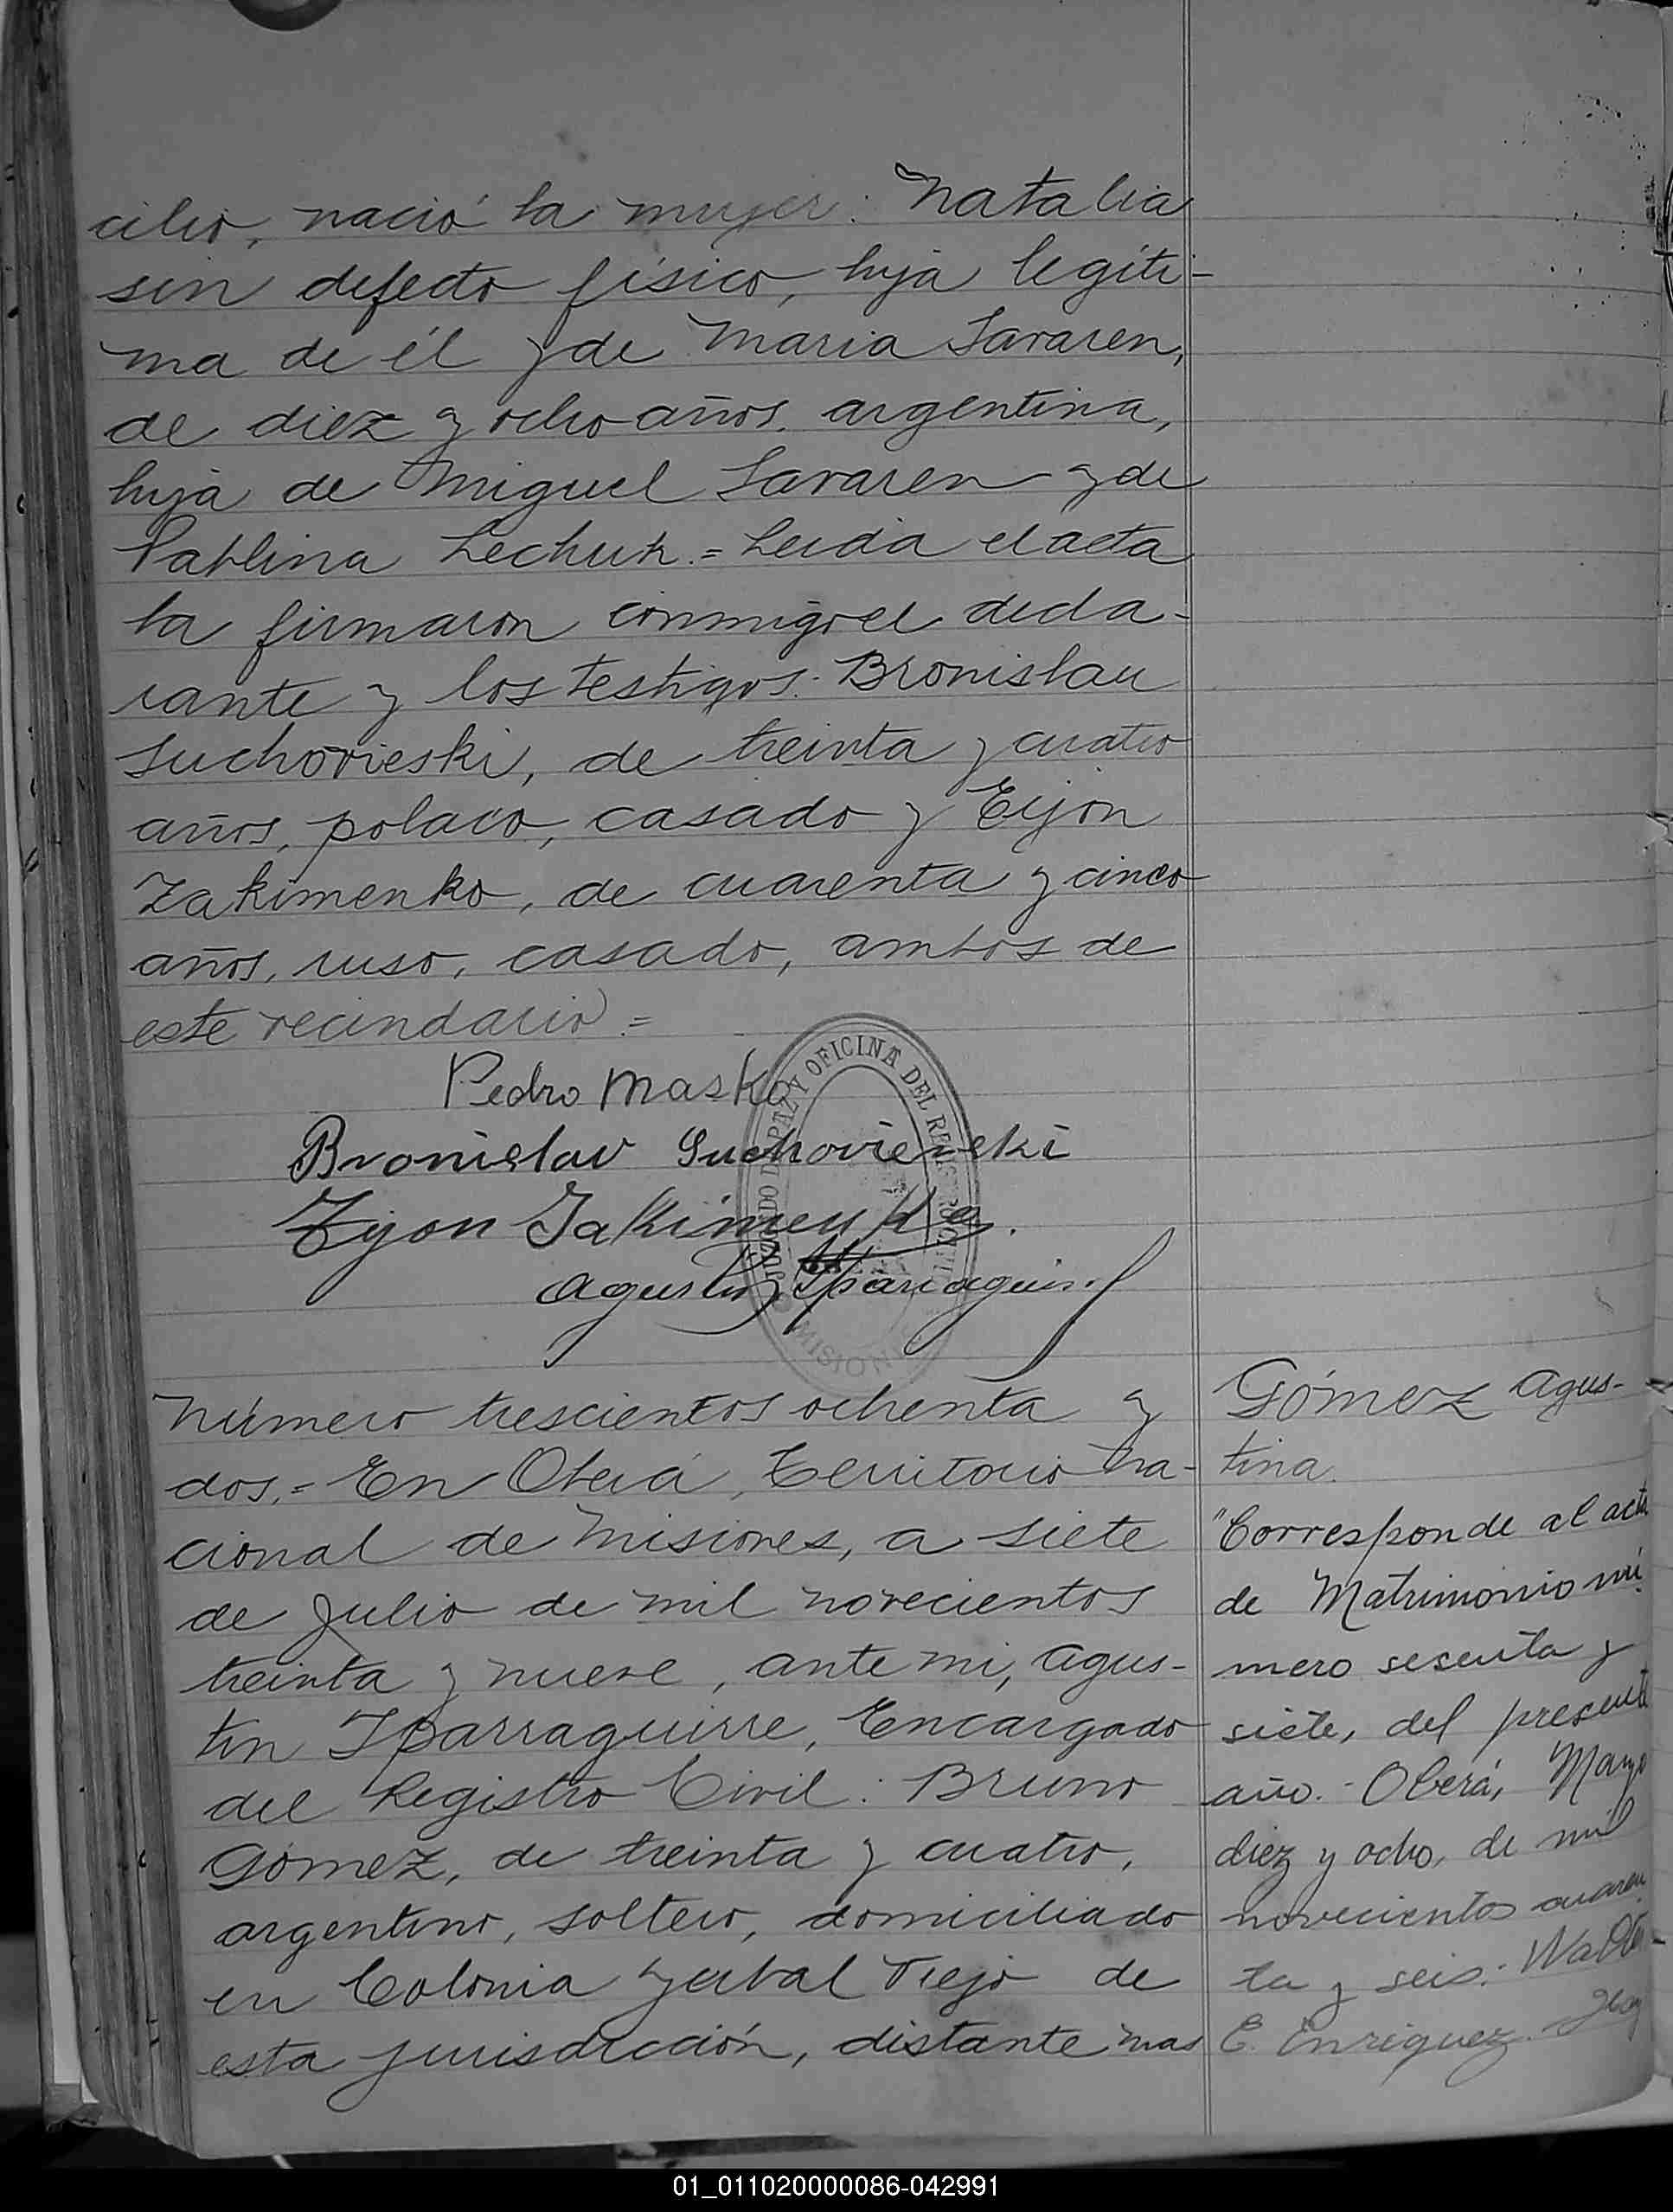 cilio, nació la mujer: Natalia
sin defecto físico, hija legíti-
ma de él y de Maria Savaren,
de diez y ocho años, argentina,
hija de Miguel Savaren y de
Pablina Lechuk.= Leida el acta
la firmaron conmigo el decla-
rante y los testigos: Bronislau
Suchovieski, de treinta y cuatro
años, polaco, casado y Eijon
Zakimenko, de cuarenta y cinco
años, ruso, casado, ambos de
este vecindario=
Pedro Masko
Bronislav Suchovierski
Tyon Jakimenko.
Agustin Iparraguirre
JUZGADO DE PAZ Y OFICINA DEL REGISTRO CIVIL
MISIONES
Número trescientos ochenta y
dos.= En Oberá, Territorio Na-
cional de Misiones, a siete
de Julio de mil novecientos
treinta y nueve, ante mi, Agus-
tin Iparraguirre, Encargado
del Registro Civil: Bruno
Gómez, de treinta y cuatro,
argentino, soltero, domiciliado
en Colonia Yerbal Viejo de
esta jurisdicción, distante mas
Gómez Agus-
tina.
"Corresponde al acta
de Matrimonio nú-
mero sesenta y
siete, del presente
año.- Oberá, Mayo
diez y ocho, de mil
novecientos cuaren-
ta y seis.- Walter
E. Enriquez.
01_011020000086-042991